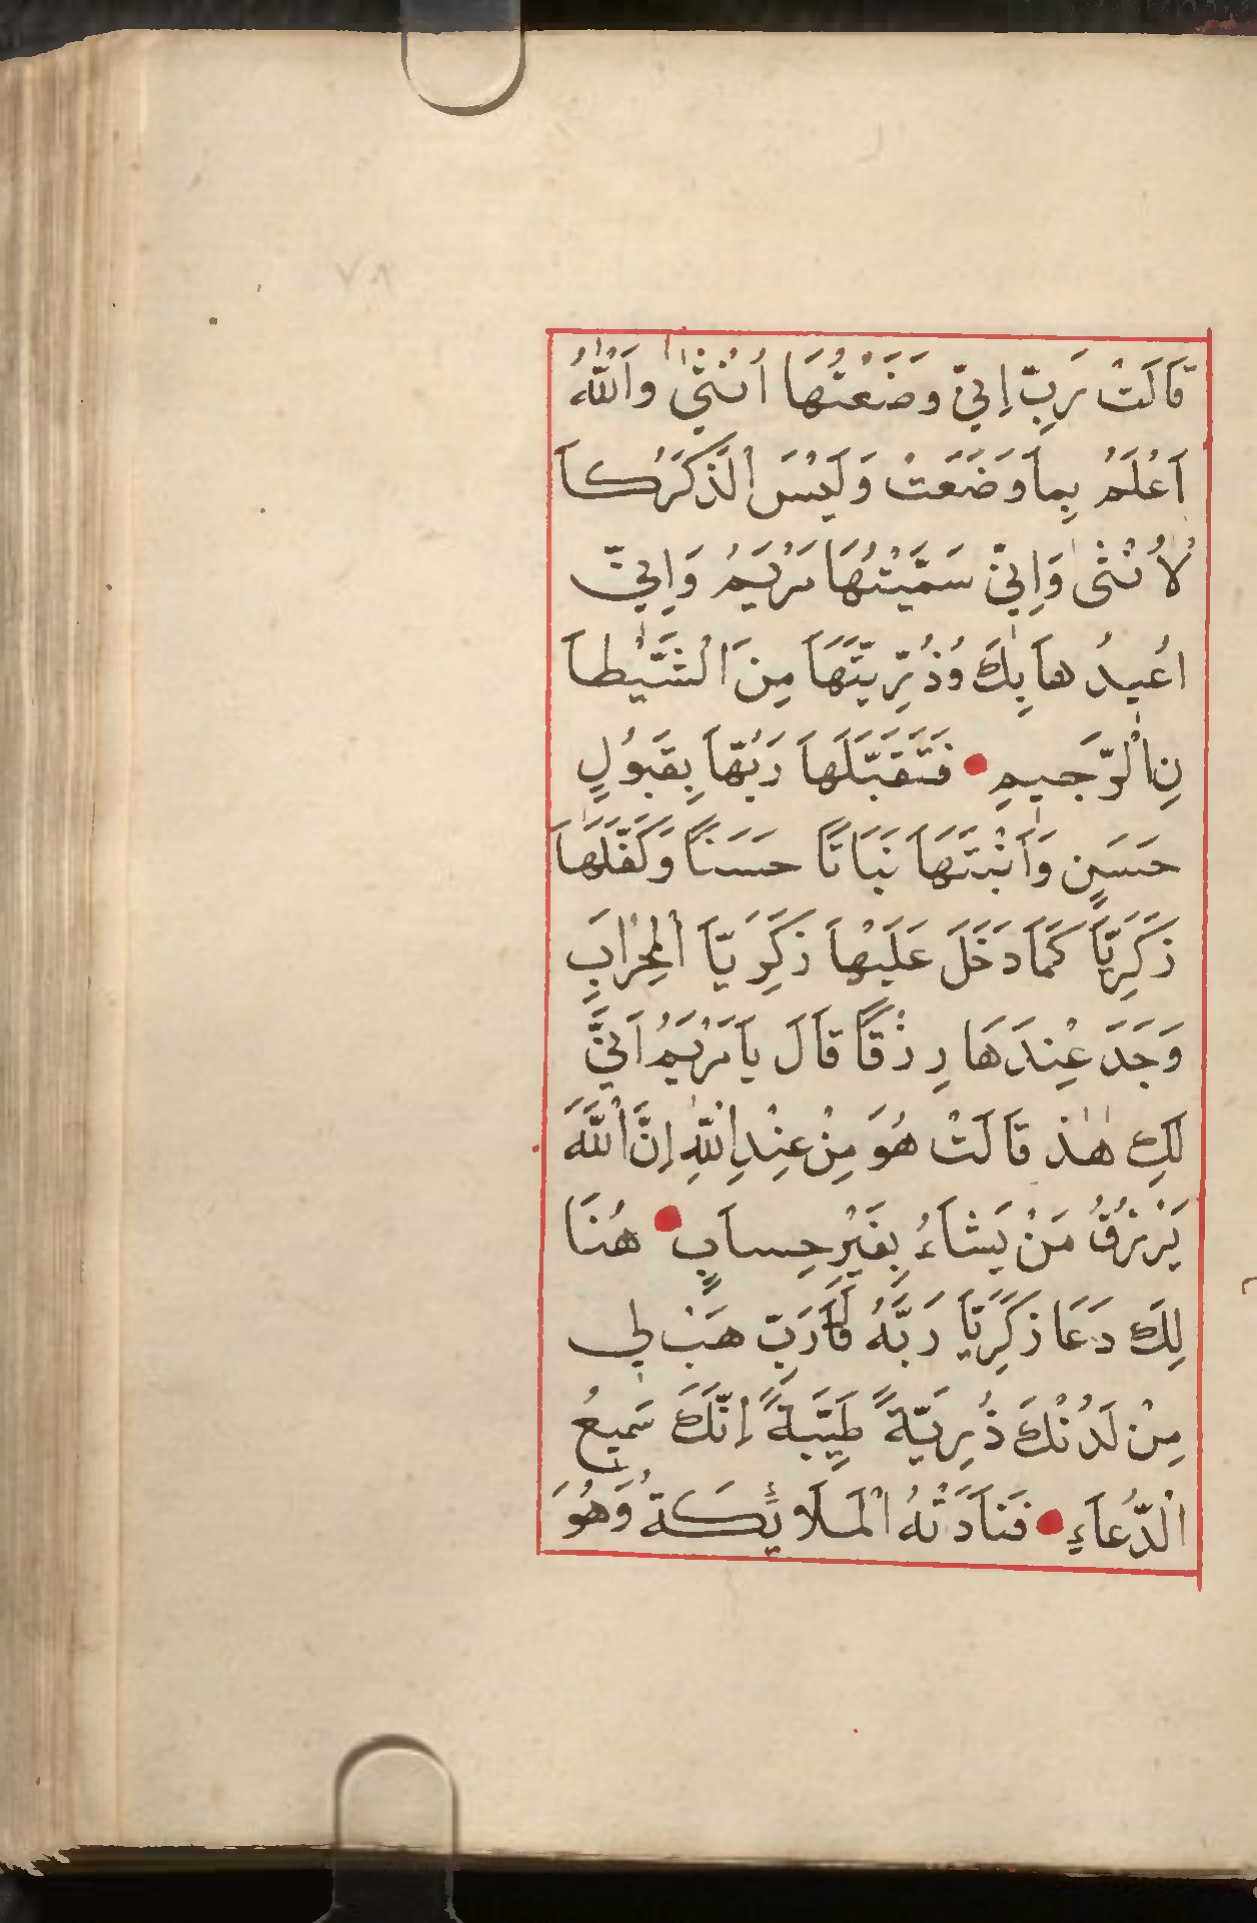 ٧٨
قَالَتْ رَبِّ اِنِّي وَضَعْتُهَا اُنْثٰى وَاَللّٰهُ
اَعْلَمُ بِمَا وَضَعَتْ وَلَيْسَ الذَّكَرُ كَا
لْاُنْثٰى وَاِنِّي سَمَّيْتُهَا مَرْيَمُ وَاِنِّي
اُعيدُ هَا بِكَ وُذُرِّيَّتَهَا مِنَ الْشَّيْطَا
نِ الْرَّجَيمِ فَتَقَبَّلَهَا رَبُّهَا بِقَبَولٍ
حَسَنٍ وَاَنْبَتَهَا نَبَاتًا حَسَنًا وَكَفَّلَهَا
زَكَرِيَّا كَمَا دَخَلَ عَلَيْهَا زَكَرِيَّا الْمِحْرَابِ
وَجَدَ عِنْدَهَا رِزْقًا قَالَ يَا مَرْيَمُ اَنّيَّ
لَكِ هٰذٰ قَالَتْ هُوَ مِنْ عِنْدِ اللّٰهِ اِنَّ اللّٰهَ
يَرْزُقُ مَنْ يَشَاءُ بِغَيْرِ حِسابٍ هُنَا
لِكَ دَعَا زَكَرِيَّا رَبَّهُ قَاَرَبِّ هَبْ لي
مِنْ لَدُنْكَ ذُرِيَّةً طَيِّبَةً اِنَّكَ سَميعُ
الْدُّعَاءِ فَنَادَتْهُ الْمَلَائِكَةُ وَهُوَ